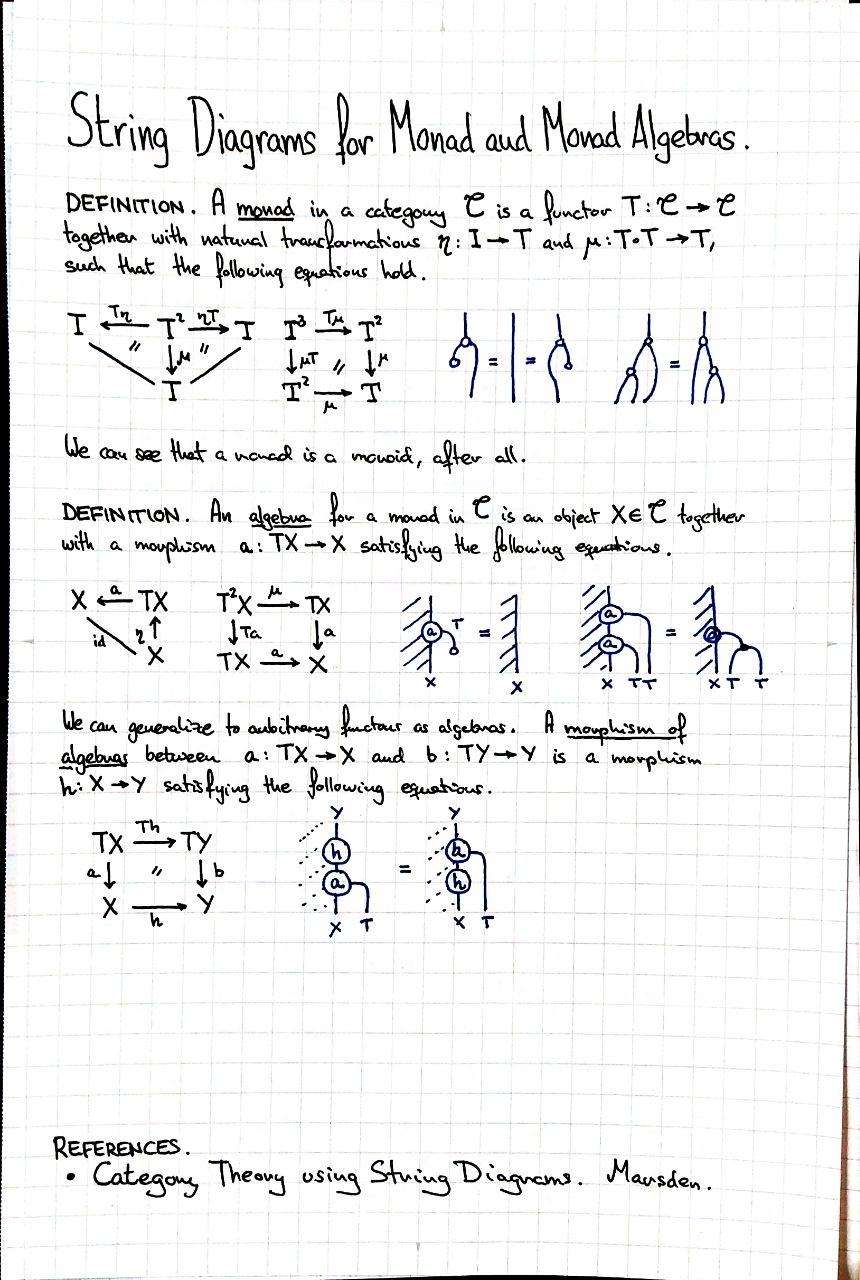 String Diagrams for Monad and Monad Algebras.
DEFINITION. A monad in a category C is a functor T: C → C
together with natural transformations η: I → T and μ: T∘T → T,
such that the following equations hold.
T ←Tη— T² —ηT→ T T³ —Tμ→ T²
〃 ↓μ 〃 ↓μT 〃 ↓μ
T T² —μ→ T
= = =
We can see that a monad is a monoid, after all.
DEFINITION. An algebra for a monad in C is an object X∈C together
with a morphism a: TX → X satisfying the following equations.
X ←a— TX T²X —μ→ TX a T = a =
id η↑ ↓Ta ↓a a
X TX —a→ X X X X T T X T T
We can generalize to arbitrary functors as algebras. A morphism of
algebras between a: TX → X and b: TY → Y is a morphism
h: X → Y satisfying the following equations.
Y Y
TX —Th→ TY h b
a↓ 〃 ↓b a = h
X —h→ Y X T X T
REFERENCES.
• Category Theory using String Diagrams. Marsden.